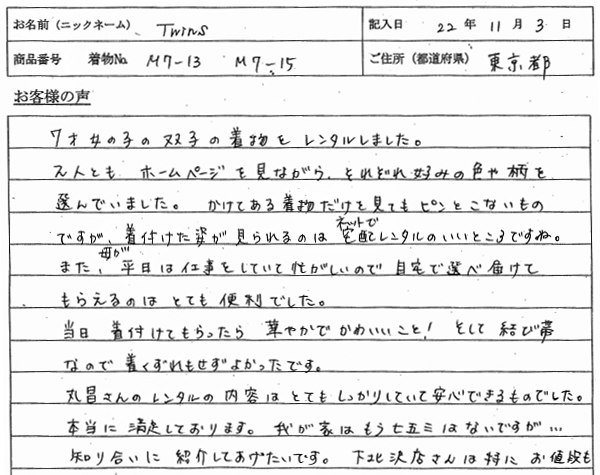 お名前（ニックネーム） Twins 記入日 22年 11月 3日
商品番号 着物No. M7-13 M7-15 ご住所（都道府県） 東京都
お客様の声
7才女の子の双子の着物をレンタルしました。
2人とも ホームページを見ながら、それぞれ好みの色や柄を
選んでいました。 かけてある着物だけを見てもピンとこないもの
ですが、着付けた姿が見られるのは ネットで宅配レンタルのいいところですね。
また、母が平日は仕事をしていて忙がしいので 自宅で選べ届けて
もらえるのは とても便利でした。
当日 着付けてもらったら 華やかで かわいいこと! そして 結び帯
なので着くずれもせずよかったです。
丸昌さんのレンタルの内容はとてもしっかりしていて安心できるものでした。
本当に満足しております。 我が家はもう七五三はないですが…
知り合いに紹介してあげたいです。 下北沢店さんは特に お値段も